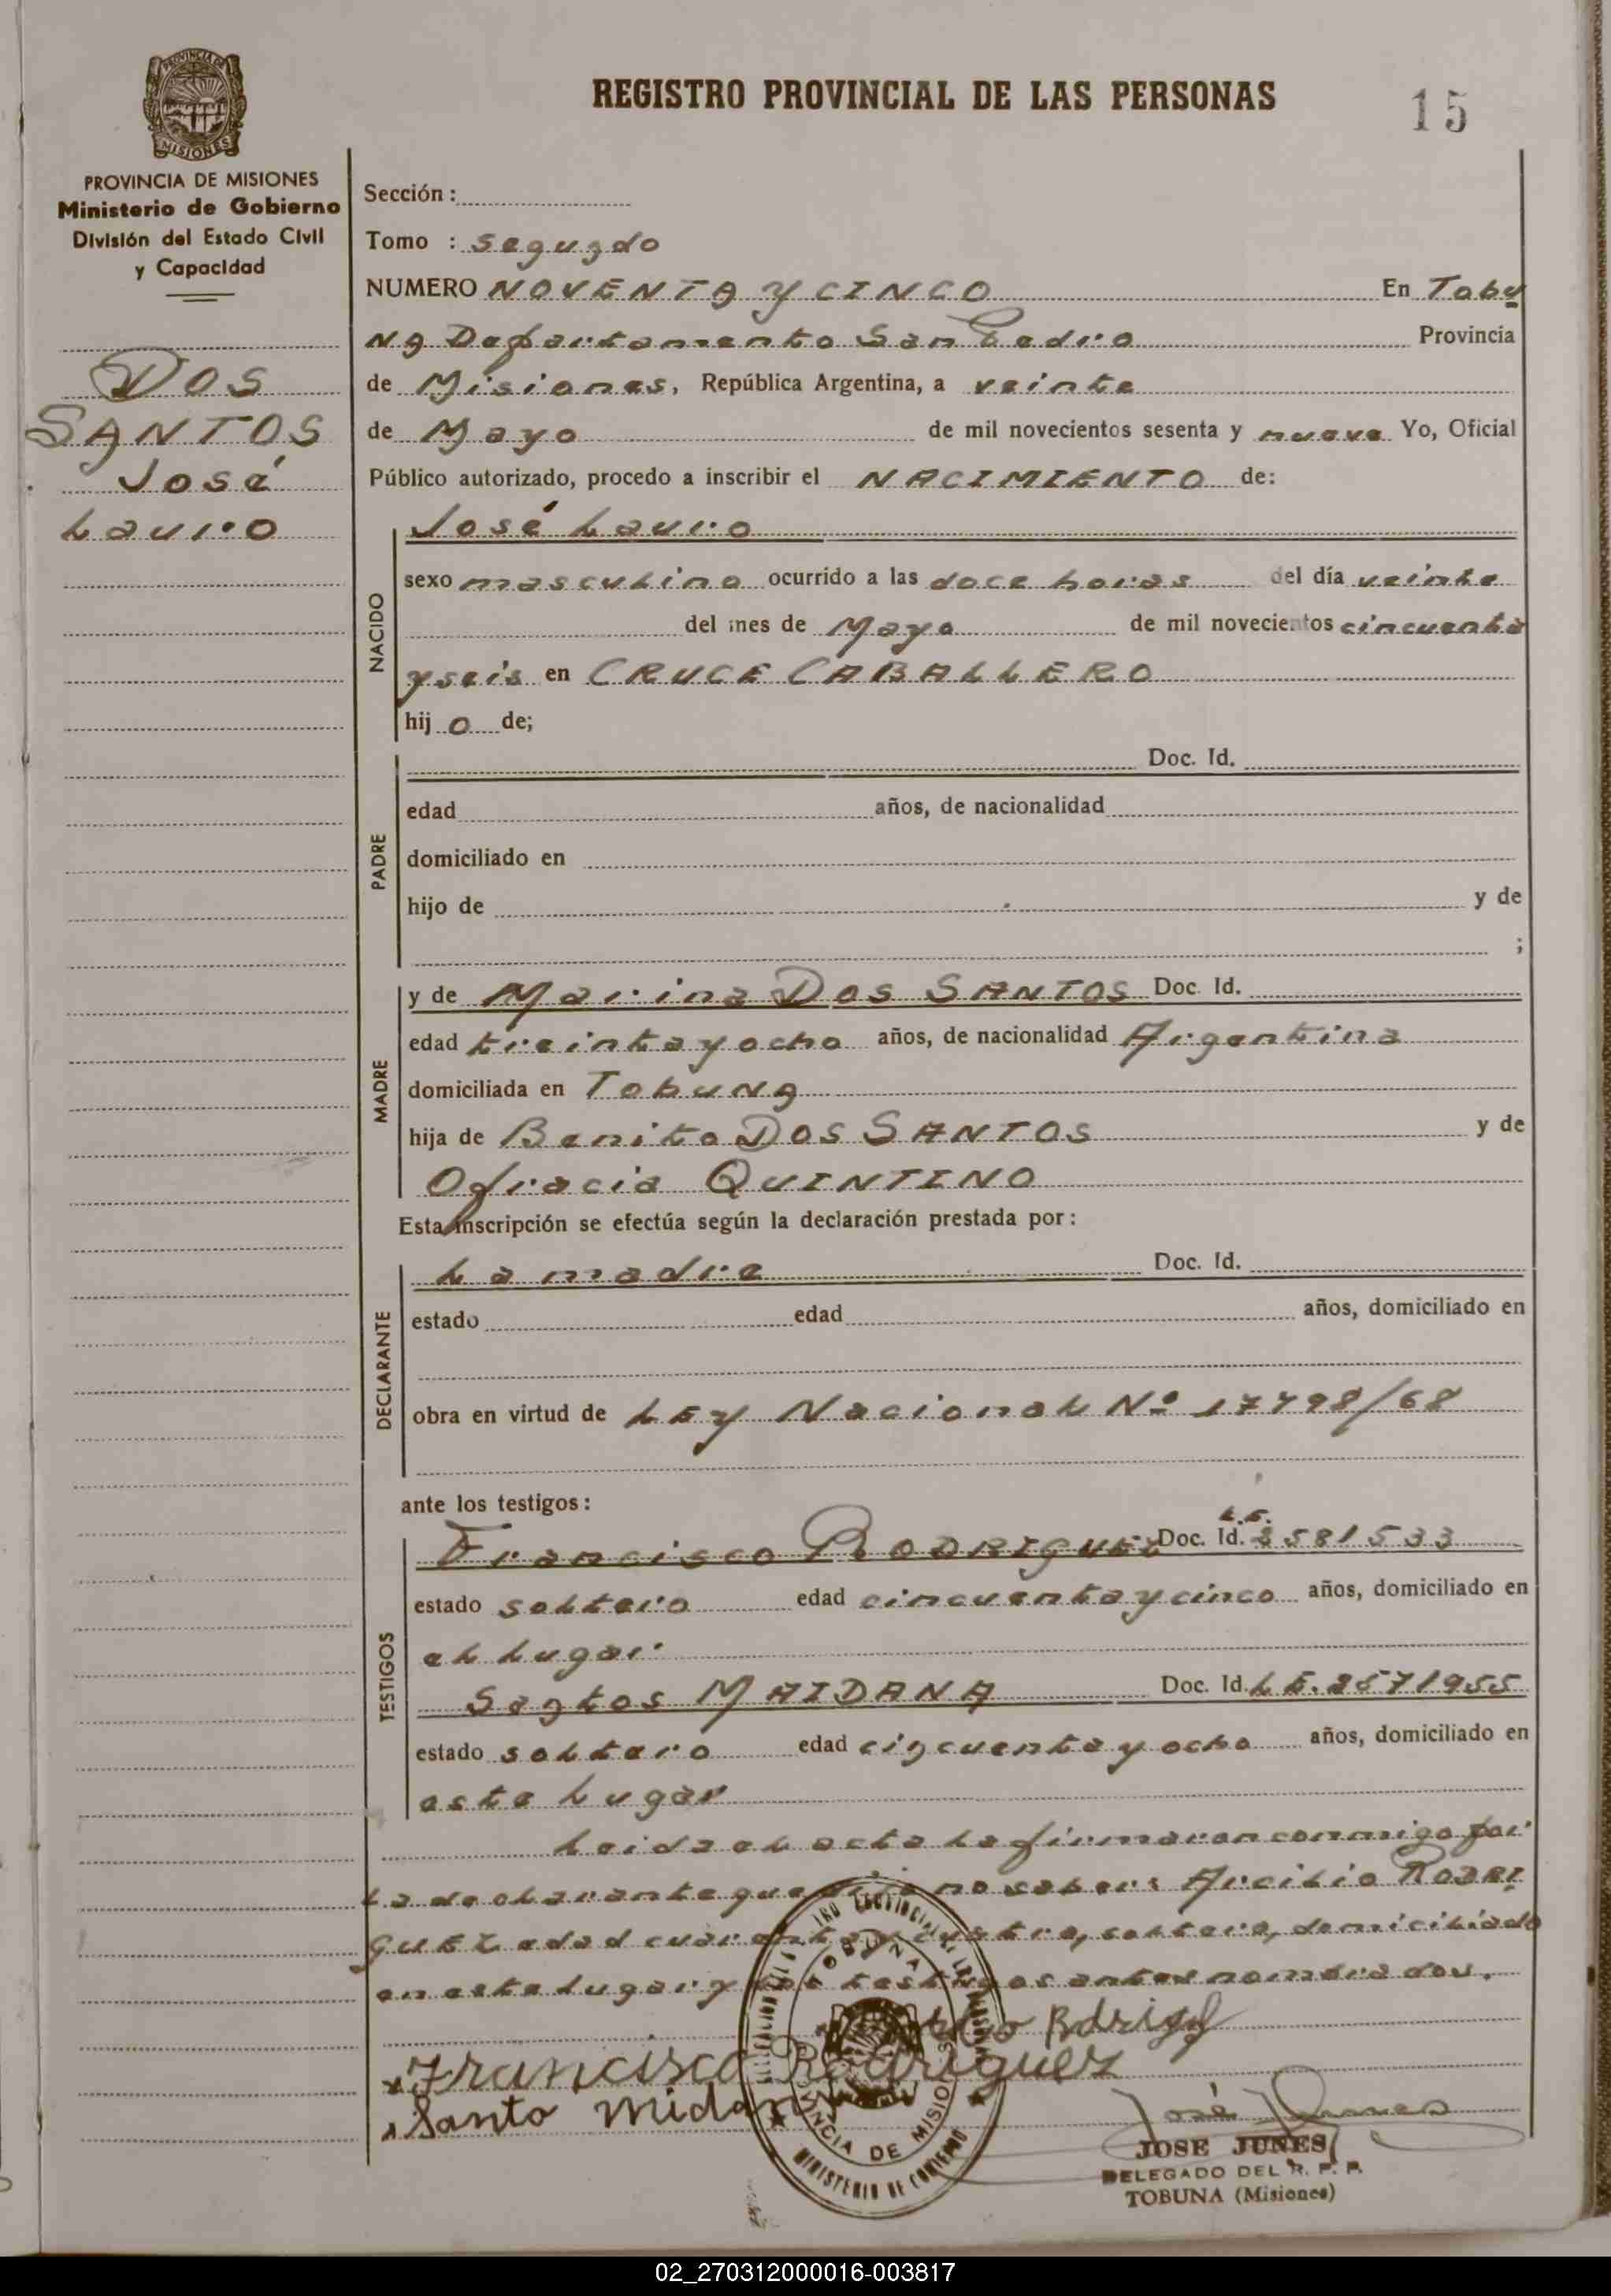 REGISTRO PROVINCIAL DE LAS PERSONAS
15
PROVINCIA DE
MISIONES
PROVINCIA DE MISIONES
Ministerio de Gobierno
División del Estado Civil
y Capacidad
DOS
SANTOS
José
Lauro
Sección :
Tomo : Segundo
NUMERO NOVENTA y CINCO En Tobu
NA Departamento San Pedro Provincia
de Misiones, República Argentina, a veinte
de Mayo de mil novecientos sesenta y nueve Yo, Oficial
Público autorizado, procedo a inscribir el NACIMIENTO de:
NACIDO
José Lauro
sexo masculino ocurrido a las doce horas del día veinte
del mes de Mayo de mil novecientos cincuenta
y seis en CRUCE CABALLERO
hij o de;
PADRE
Doc. Id.
edad años, de nacionalidad
domiciliado en
hijo de y de
;
MADRE
y de Marina DOS SANTOS Doc. Id.
edad treinta y ocho años, de nacionalidad Argentina
domiciliada en Tobuna
hija de Benito DOS SANTOS y de
Ofracia QUINTINO
Esta inscripción se efectúa según la declaración prestada por :
DECLARANTE
La madre Doc. Id.
estado edad años, domiciliado en
obra en virtud de LEy Nacional Nº 17798/68
ante los testigos :
TESTIGOS
L.E.
Francisco RODRIGUEZ Doc. Id. 3581533
estado soltero edad cincuenta y cinco años, domiciliado en
el lugar
Santos MAIDANA Doc. Id. L E. 3571955
estado soltero edad cincuenta y ocho años, domiciliado en
este lugar
Leida el acta la firmaron conmigo por
la declarante que dijo no saber: Arcilio RODRI
GUEZ edad cuarenta y cuatro, soltero, domiciliado
en este lugar y los testigos antes nombrados.
Francisco Rodriguez
Santo Midan
José Junes
JOSE JUNES
DELEGADO DEL R. P. P.
TOBUNA (Misiones)
TOBUNA
PROVINCIA DE MISIONES
MINISTERIO DE GOBIERNO
02_270312000016-003817